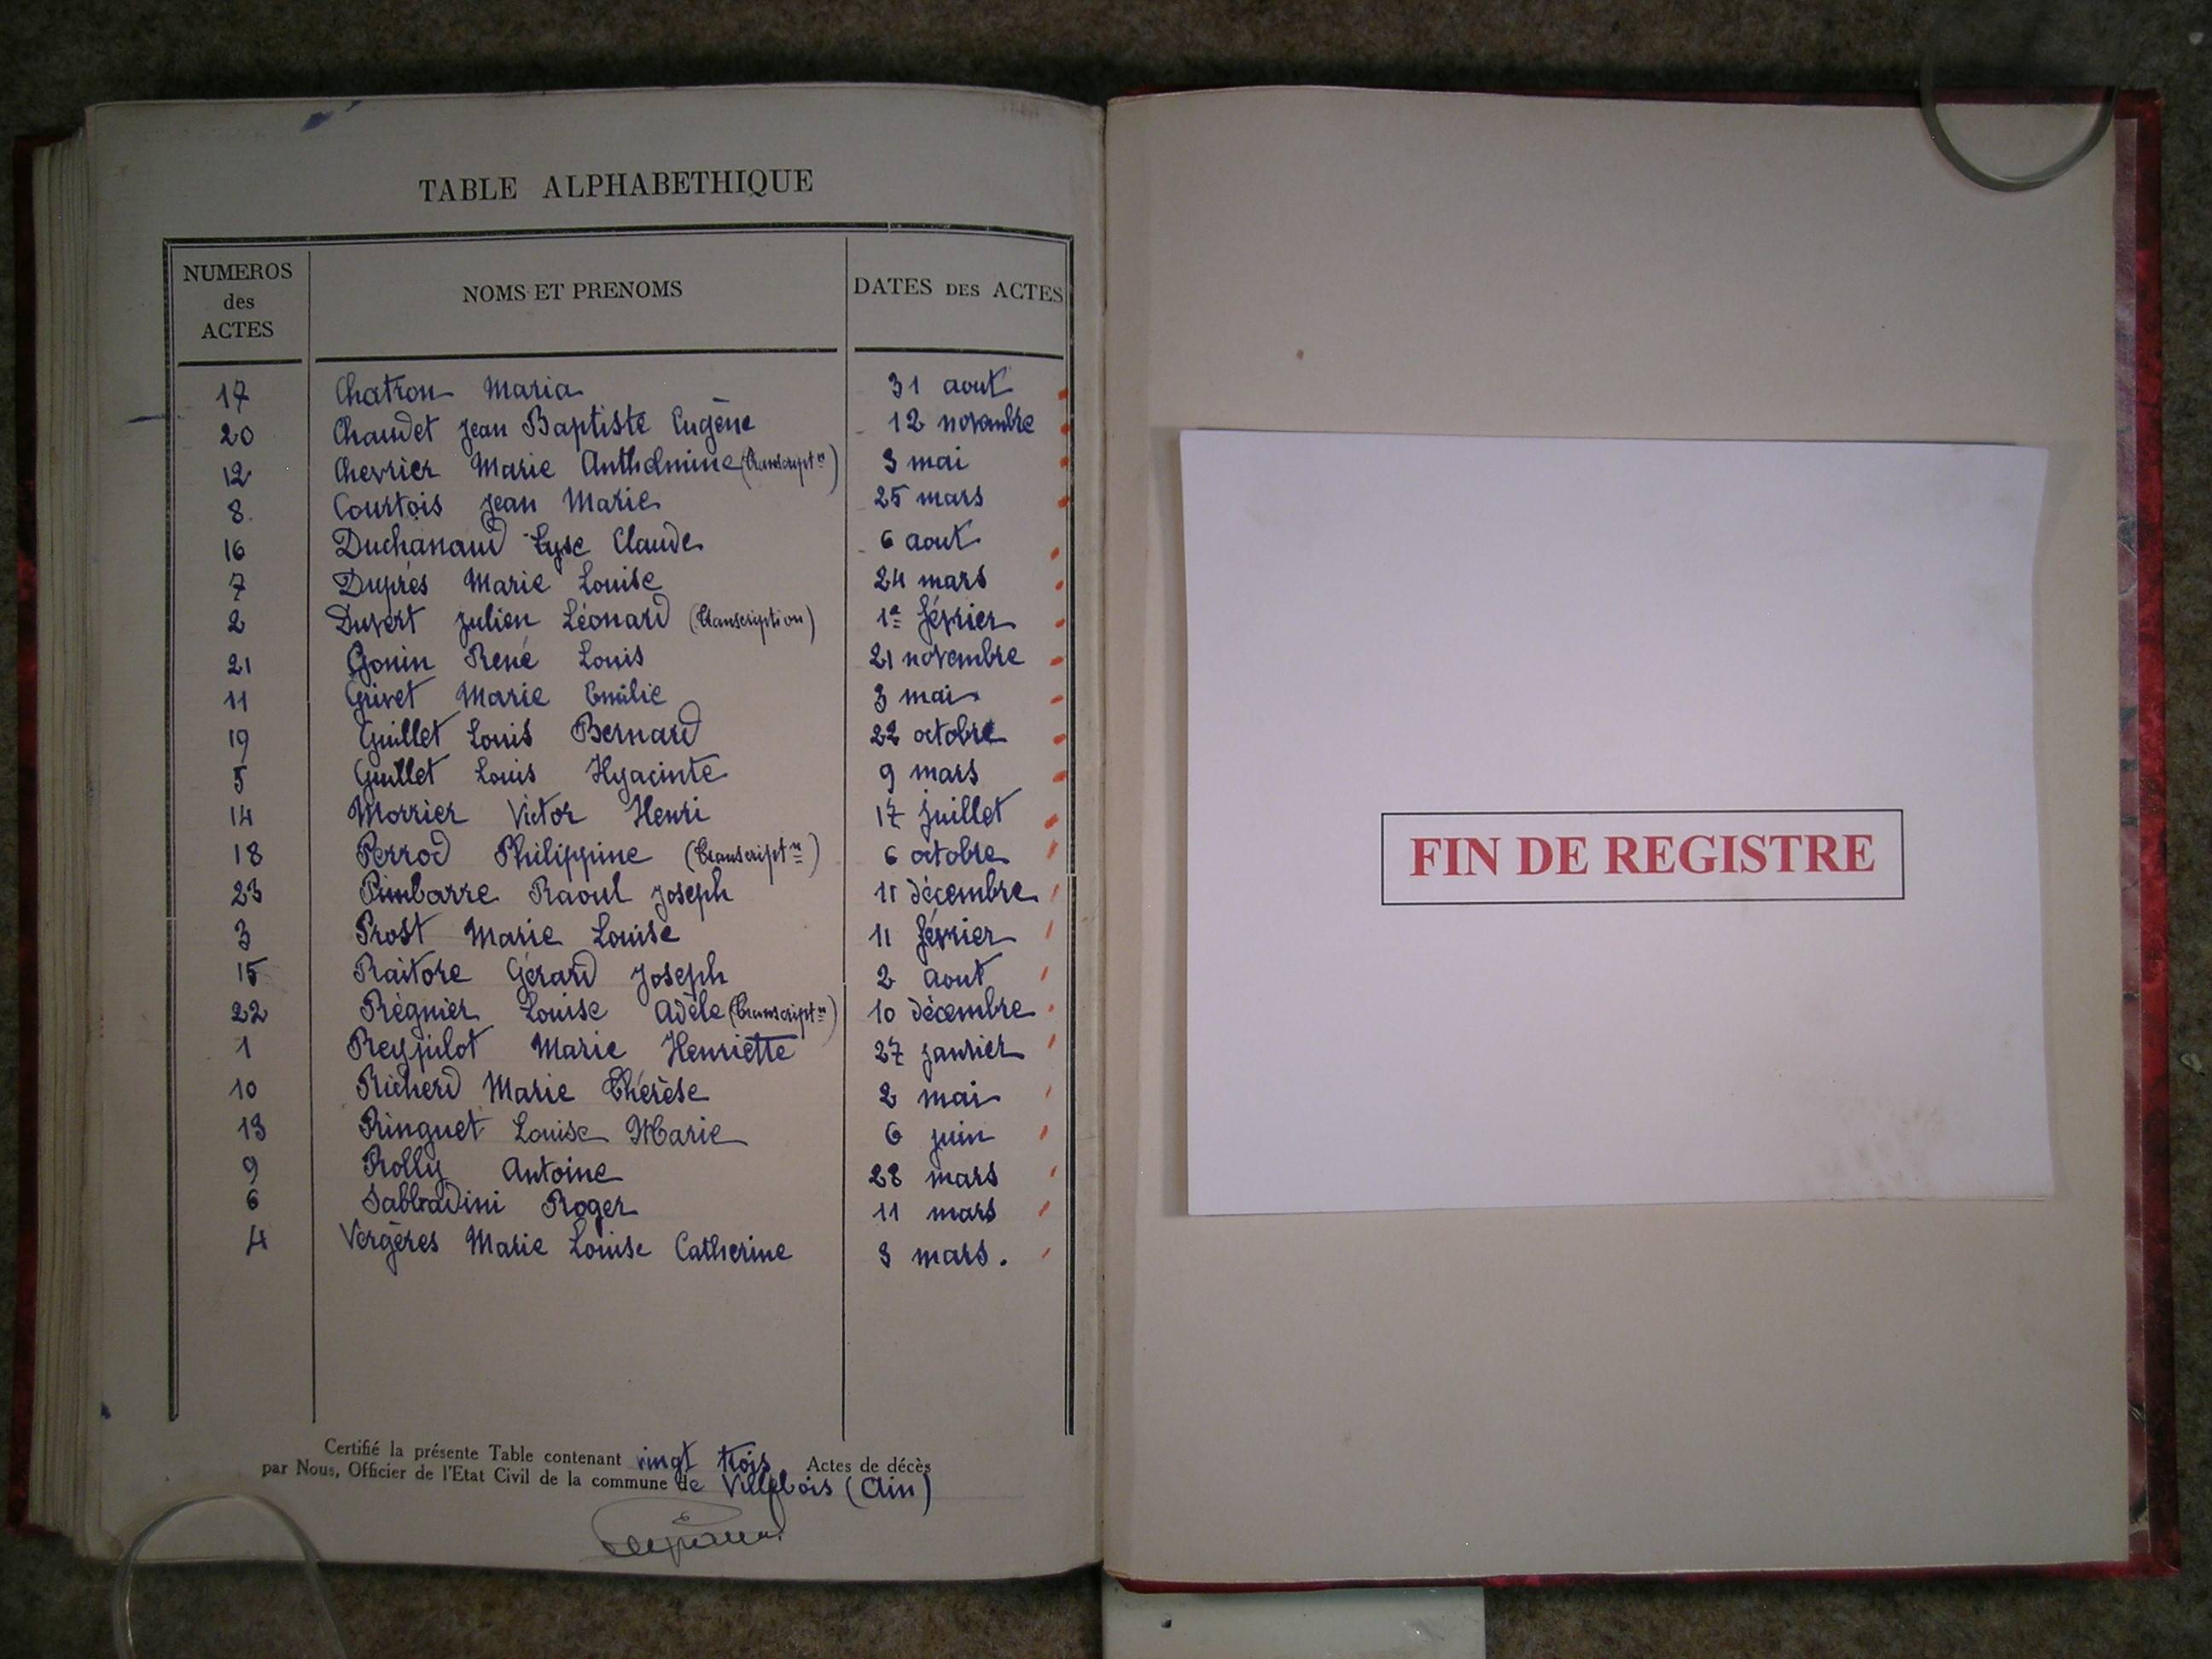 TABLE ALPHABETHIQUE
NUMEROS des ACTES NOMS ET PRENOMS DATES DES ACTES
17 Chatron Maria 31 aout
20 Chaudet Jean Baptiste Eugène 12 novembre
12 Chevrier Marie Antholmine (Transcriptn) 3 mai
8 Courtois Jean Marie 25 mars
16 Duchanaud Lyse Claude 6 aout
7 Duprès Marie Louise 24 mars
2 Duvert Julien Léonard (Transcription) 1er février
21 Gonin René Louis 21 novembre
11 Grivet Marie Emilie 3 mai
19 Guillet Louis Bernard 22 octobre
5 Guillet Louis Hyacinte 9 mars
14 Morrier Victor Henri 17 juillet
18 Perrod Philippine (Transcriptn) 6 octobre
23 Pimbarre Raoul Joseph 11 décembre
3 Prost Marie Louise 11 février
15 Raitore Gérard Joseph 2 aout
22 Régnier Louise Adèle (Transcriptn) 10 décembre
1 Reyjulot Marie Henriette 27 janvier
10 Richerd Marie Thérèse 2 mai
13 Ringuet Louise Marie 6 juin
9 Rolly Antoine 28 mars
6 Sabbadini Roger 11 mars
4 Vergères Marie Louise Catherine 3 mars.
Certifié la présente Table contenant vingt trois Actes de décès
par Nous, Officier de l'Etat Civil de la commune de Villebois (Ain)
FIN DE REGISTRE